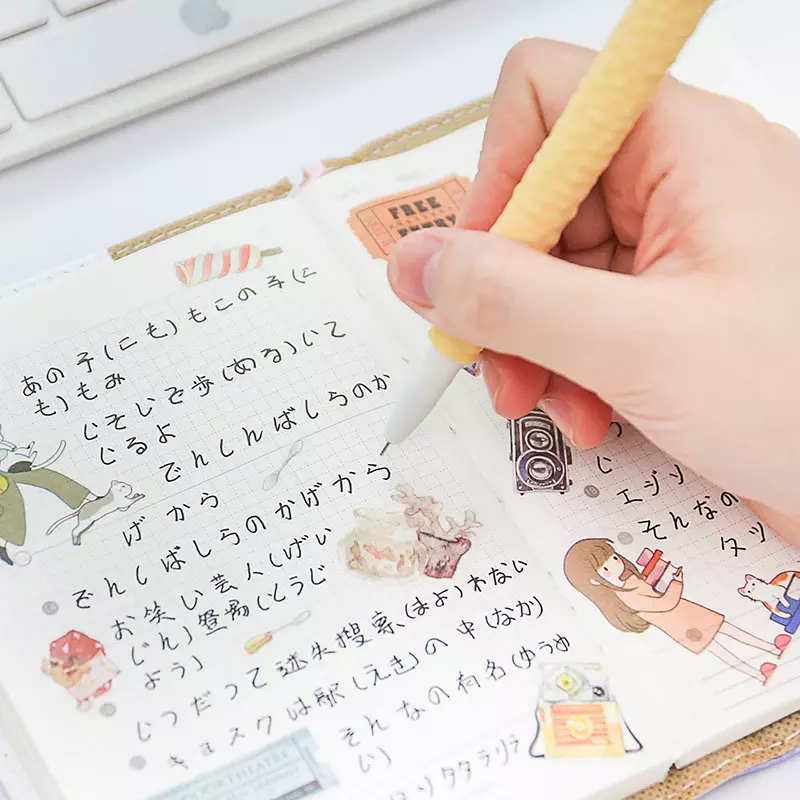 あの子(にも)もこの子(に
も)もみ
じそじそ歩(ある)いて
じるよ
でんしんばしらのか
げから
でんしばしらのかげから
お笑い芸人(しげい
じん)登場(とうじ
よう)
じつだって迷失搜索(まよ)わない
キヨスクは駅(えき)の中(なか)
そんなの有名(ゆうゆ
い)
タタラリラ
FREE
ENTRY
じ
エジソ
そんなの
タツ